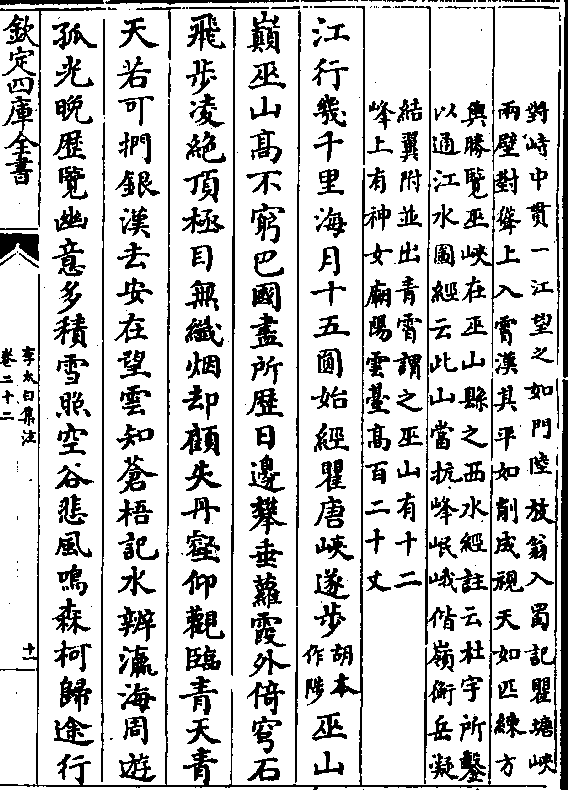 對峙中貫一江望之如門陸放翁入蜀記瞿塘峽
兩壁對聳上入霄漢其平如削成視天如匹練方
輿勝覽巫峽在巫山縣之西水經註云杜宇所鑿
以通江水圖經云此山當抗峰岷峨偕嶺衡岳凝
結翼附並出青霄謂之巫山有十二
峰上有神女廟陽雲臺髙百二十丈
江行幾千里海月十五圓始經瞿唐峽遂步胡本作陟巫山
巔巫山髙不窮巴國盡所歴日邊攀垂蘿霞外倚穹石
飛步凌絶頂極目無纎烟却顧失丹壑仰觀臨青天青
天若可捫銀漢去安在望雲知蒼梧記水辨瀛海周遊
孤光晚歴覽幽意多積雪照空谷悲風鳴森柯歸途行
欽定四庫全書
李太白集注
卷二十二
十一